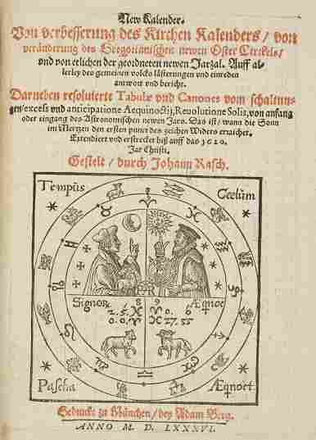 New Kalender.
Von verbesserung des Kirchen Kalenders/ von
veränderung des Gregorianischen newen Oster Circkels/
und von etlichen der geordneten newen Jarzal. Auff al-
lerley des gemeinen volcks lästerungen und einreden
antwort und bericht.
Darneben resoluierte Tabulæ vnd Canones vom schaltun-
gen/excess vnd anticipatione Aequinoctij, Reuolutione Solis, von anfang
oder eingang des Astronomischen newen Jars. Das ist/ wann die Sonn
im Mertzen den ersten punct des zeichen Widers erraicht.
Extendiert und erstrecket biß auff das 1620.
Jar Christi.
Gestelt/ durch Johann Rasch.
Tempus
Coelum
Signor
Æqnoc
8 9
Pascha
Æqnoct
Gedruckt zu München/ bey Adam Berg.
ANNO M. D. LXXXVI.